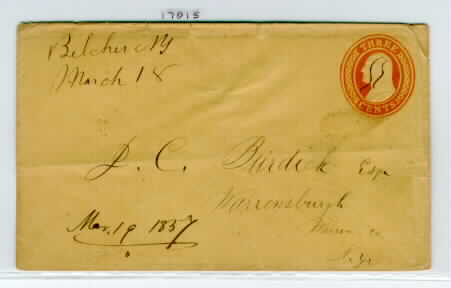 17015
Belcher NY
March 18
THREE
CENTS
D. C. Burdick Esqr
Warrensburgh
Warren Co
N.Y.
Mar. 19 1857